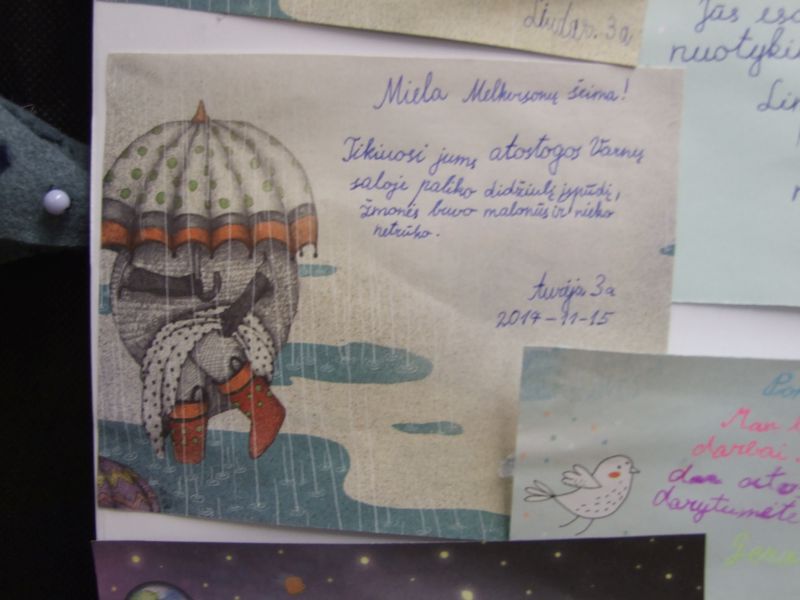 Liudas. 3a
Jūs
nuotyki
Miela Melkersonų šeima!
Tikiuosi jums atostogos Varnų
saloje paliko didžiulį įspūdį,
žmonės buvo malonūs ir nieko
netrūko.
3a
2014-11-15
Man
darbai.
darytumėte